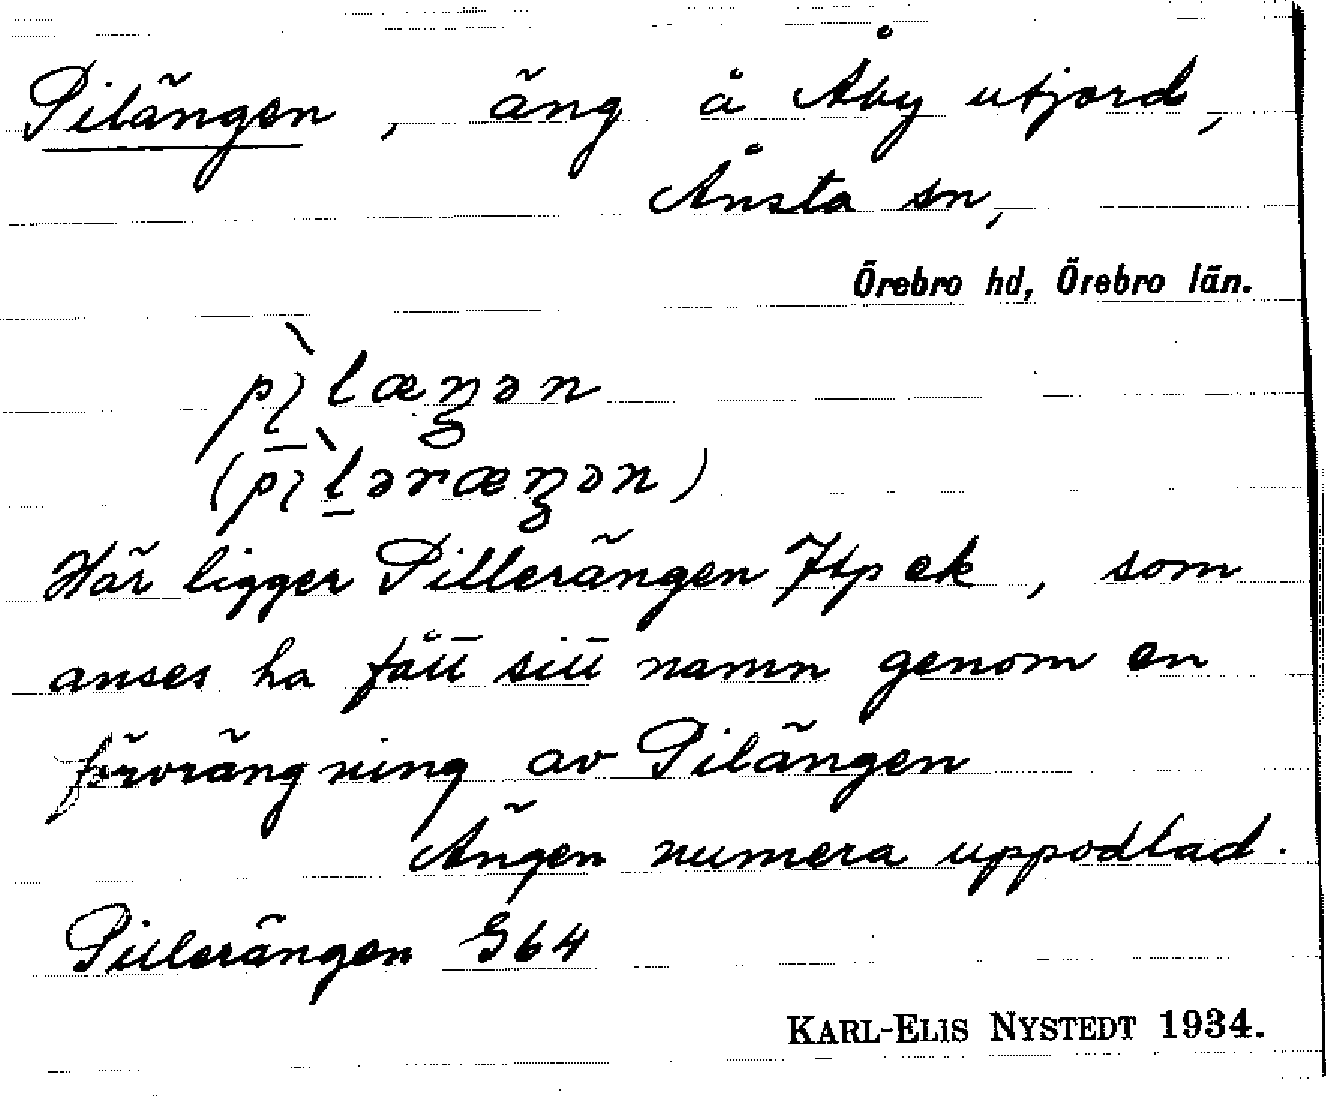 Pilängen, äng å Åby utjord,
Ånsta sn,
Örebro hd, Örebro län.
pìlæŋən
(pìləræŋən)
Här ligger Pillerängen Jtp ek, som
anses ha fått sitt namn genom en
förvrängning av Pilängen
Ängen numera uppodlad.
Pillerängen G64
KARL-ELIS NYSTEDT 1934.